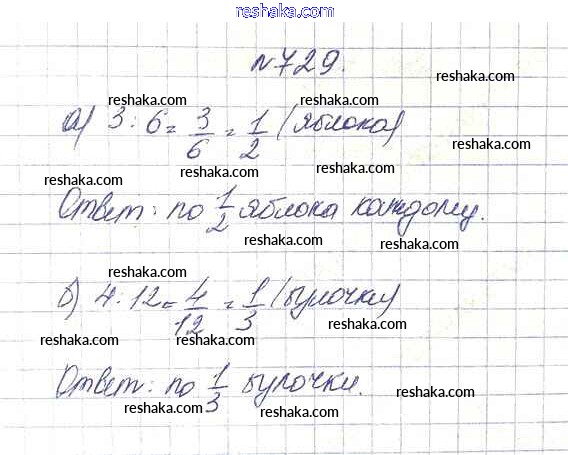 reshaka.com
№729.
reshaka.com
reshaka.com
reshaka.com
а) 3 : 6 = 3/6 = 1/2 (яблока)
reshaka.com
reshaka.com
reshaka.com
Ответ: по 1/2 яблока каждому.
reshaka.com
reshaka.com
reshaka.com
б) 4 : 12 = 4/12 = 1/3 (булочки)
reshaka.com
reshaka.com
reshaka.com
Ответ: по 1/3 булочки.
reshaka.com
reshaka.com
reshaka.com